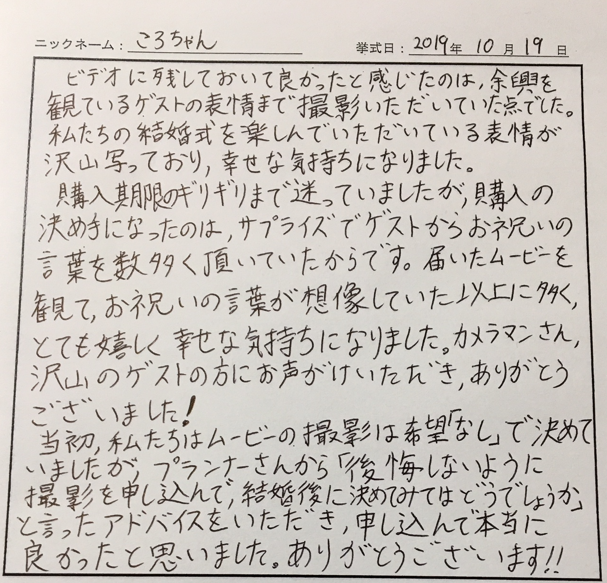 ニックネーム：ころちゃん　挙式日：2019年 10月 19日
ビデオに残しておいて良かったと感じたのは,余興を
観ているゲストの表情まで撮影いただいていた点でした。
私たちの結婚式を楽しんでいただいている表情が
沢山写っており,幸せな気持ちになりました。
購入期限のギリギリまで迷っていましたが,購入の
決め手になったのは,サプライズでゲストからお祝いの
言葉を数多く頂いていたからです。届いたムービーを
観て,お祝いの言葉が想像していた以上に多く,
とても嬉しく幸せな気持ちになりました。カメラマンさん,
沢山のゲストの方にお声がけいただき,ありがとう
ございました!
当初,私たちはムービーの撮影は希望「なし」で決めて
いましたが,プランナーさんから「後悔しないように
撮影を申し込んで,結婚後に決めてみてはどうでしょうか」
と言ったアドバイスをいただき,申し込んで本当に
良かったと思いました。ありがとうございます!!